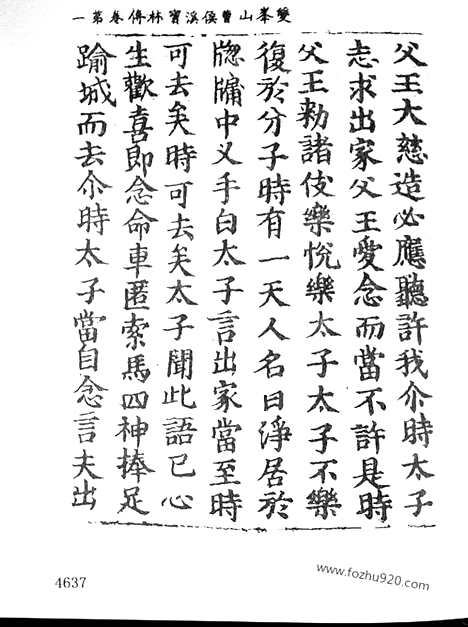 雙峯山曹侯溪寶林傳卷第一
父王大慈造必應聽許我尒時太子
志求出家父王愛念而當不許是時
父王勑諸伎樂悅樂太子太子不樂
復於分子時有一天人名曰淨居於
牎牗中叉手白太子言出家當至時
可去矣時可去矣太子聞此語已心
生歡喜即念命車匿索馬四神捧足
踰城而去尒時太子當自念言夫出
4637
www.fozhu920.com